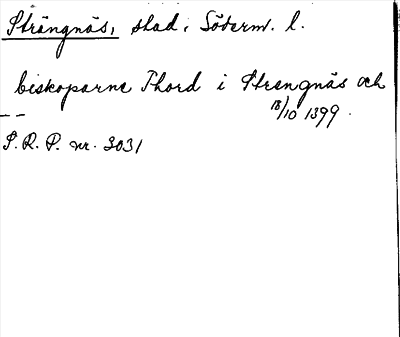 Strängnäs, stad, Söderm. l.
biskoparne Thord i Strengnäs och
-- 18/10 1399.
S.R.P. nr. 3031